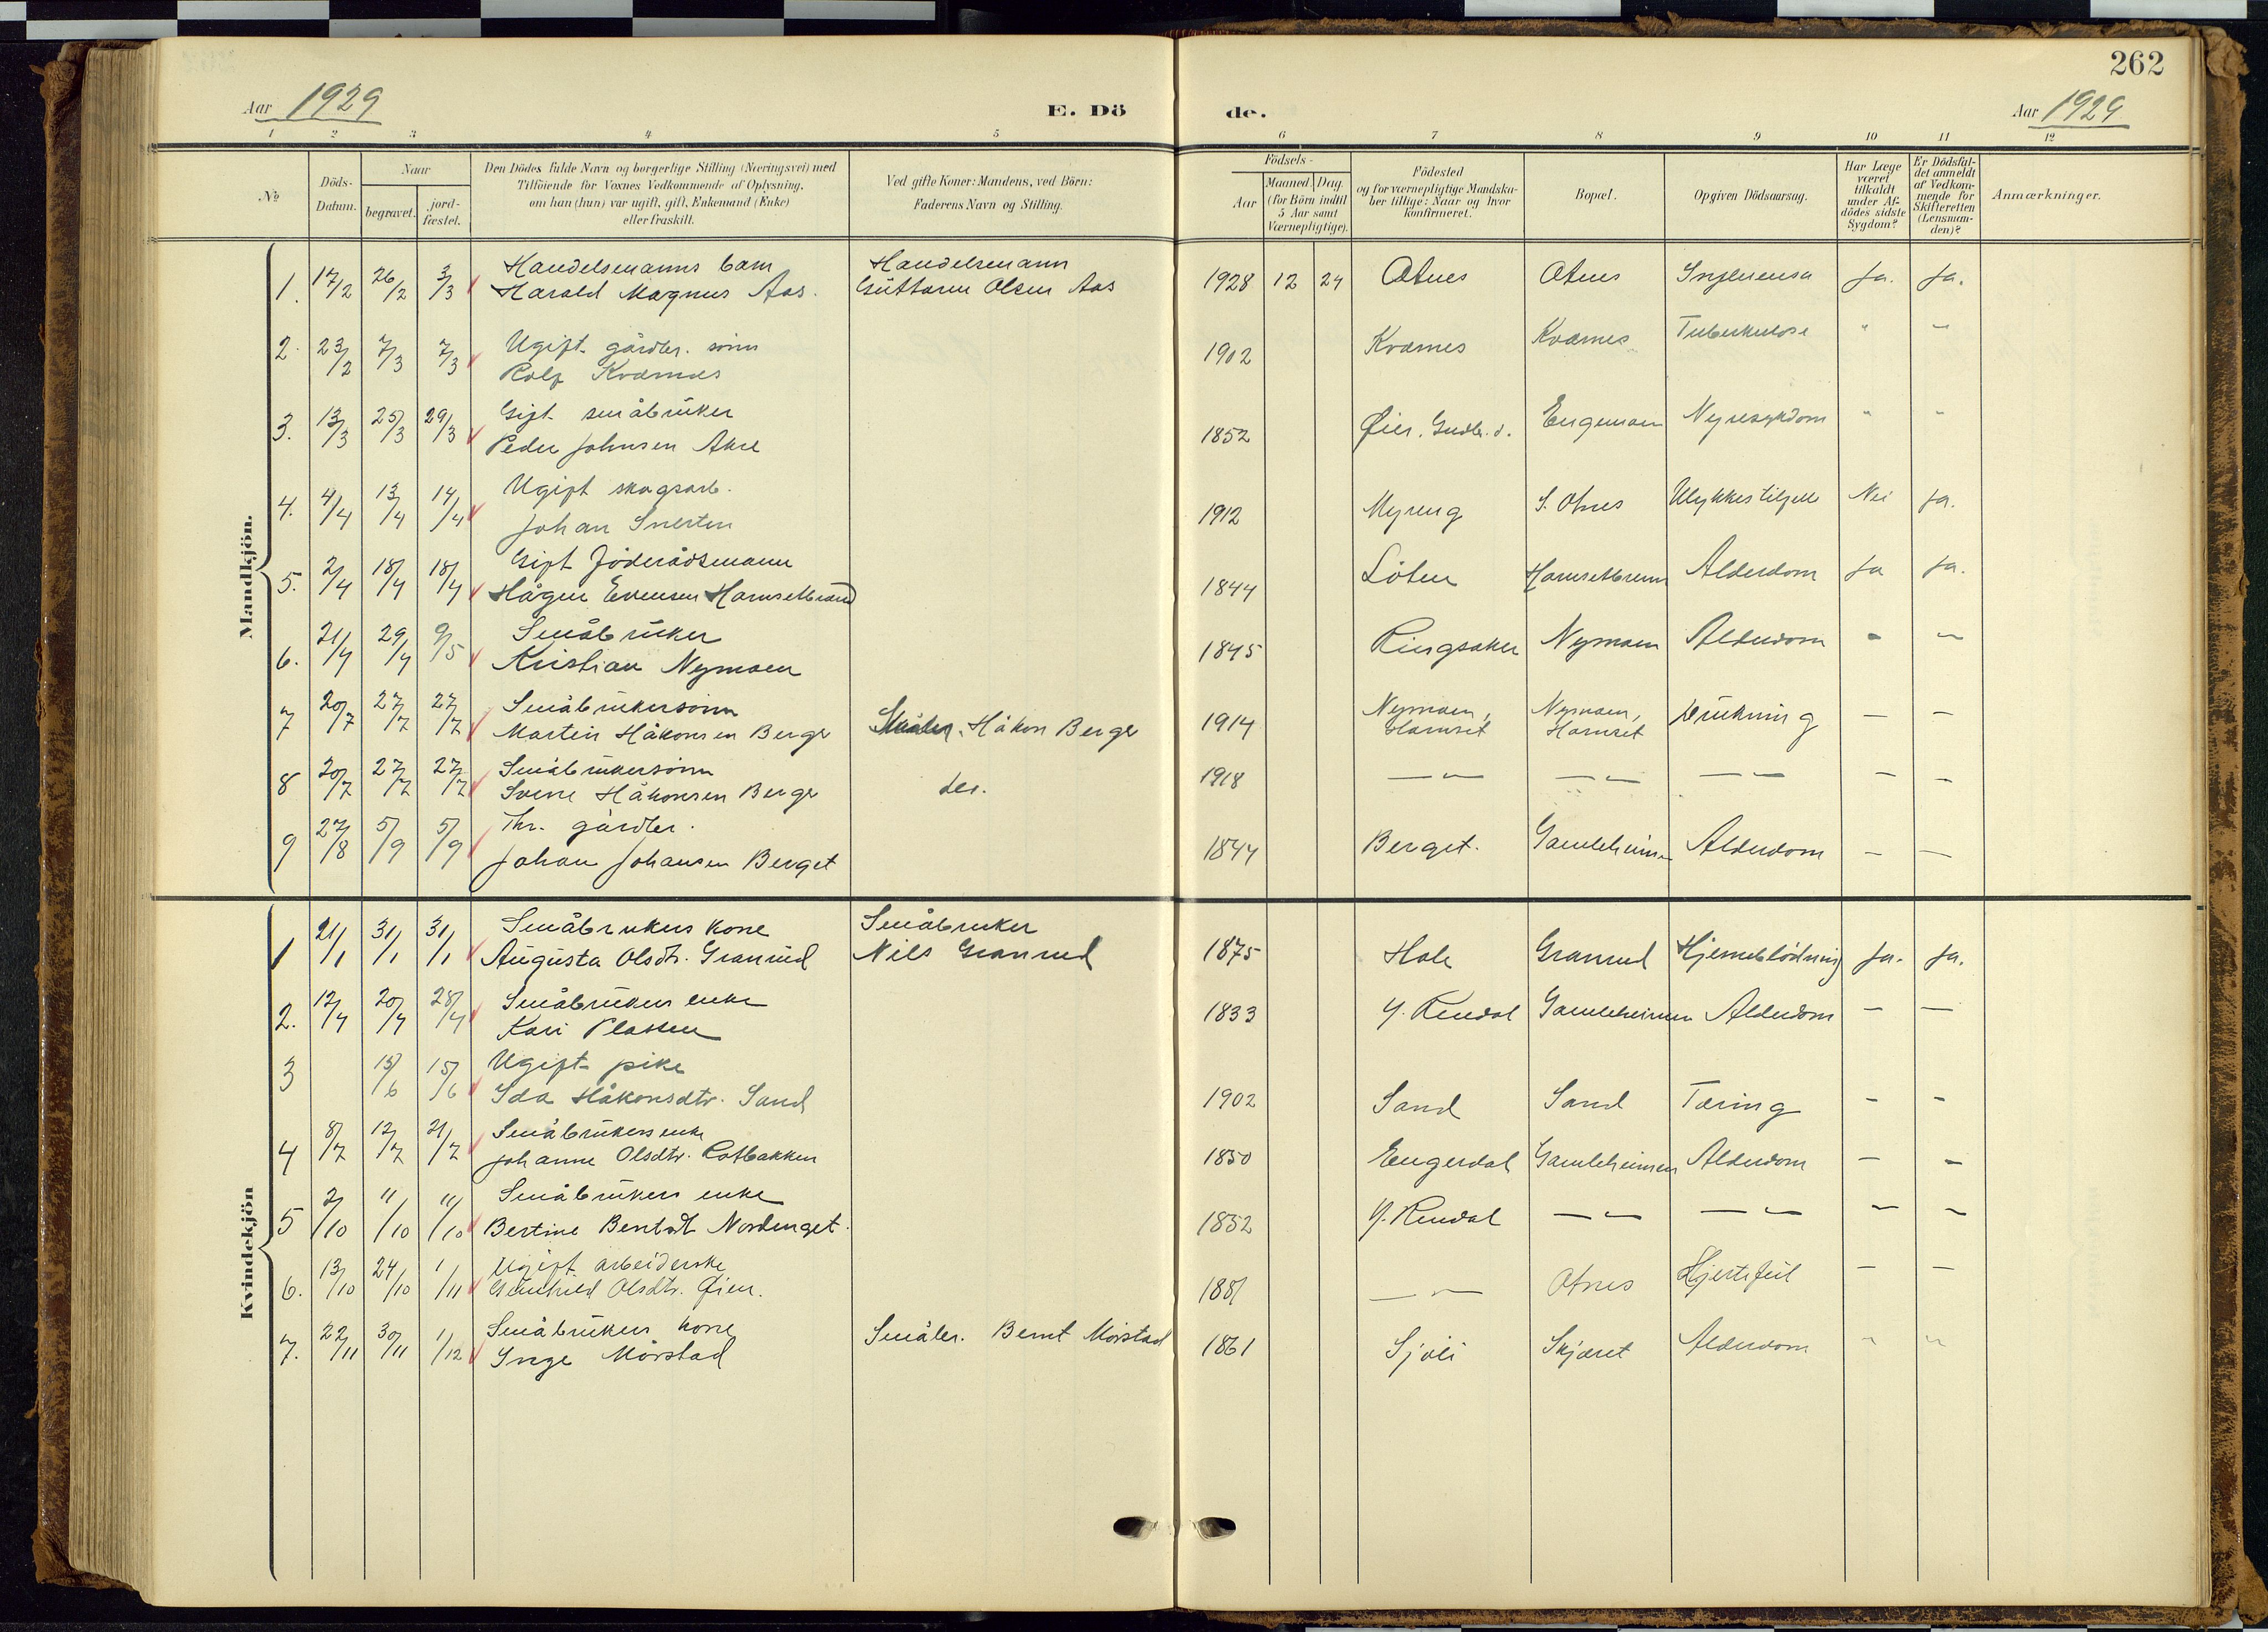 262
Aar 1929
E. Dö
de.
Aar 1929
1 2 3 4 5 6 7 8 9 10 11 12
No
Döds-Datum.
Naar
begravet.
jord-fæstet.
Den Dödes fulde Navn og borgerlige Stilling (Næringsvei) med
Tilföiende for Voxnes Vedkommende af Oplysning,
om han (hun) var ugift, gift, Enkemand (Enke)
eller fraskilt.
Ved gifte Koner: Mandens, ved Börn:
Faderens Navn og Stilling.
Födsels-
Aar
Maaned. Dag.
(for Börn indtil
5 Aar samt
Værnepligtige).
Födested
og for værnepligtige Mandska-
ber tillige: Naar og hvor
konfirmeret.
Bopæl.
Opgiven Dödsaarsag.
Har Læge
været
tilkaldt
under Af-
dödes sidste
Sygdom?
Er Dödsfal-
det anmeldt
af Vedkom-
mende for
Skifteretten
(Lensman-
den)?
Anmærkninger.
Mandkjön.
1. 17/2 26/2 3/3 Handelsmanns barn Handelsmann
Harald Magnus Aas. Guttorm Olsen Aas 1928 12 24 Otnes Otnes Influensa Ja. Ja.
2. 23/2 7/3 7/3 Ugift gårdbr. sönn
Rolf Kværnes 1902 Kværnes Kværnes Tuberkulose " "
3. 13/3 25/3 29/3 Gift småbruker
Peder Johnsen Akre 1852 Øier. Gudbr.d. Engemoen Nyresykdom " "
4. 4/4 13/4 14/4 Ugift skogsarb.
Johan Snerten 1912 Myreng S. Otnes Ulykkestilfelle Nei Ja.
5. 2/4 18/4 18/4 Gift Föderådsmann
Hågen Evensen Harnsetbrænd 1844 Löten Alderdom Ja Ja.
6. 21/4 29/4 9/5 Småbruker
Kristian Nymoen 1845 Ringsaker Nymoen Alderdom - -
7 20/7 27/7 27/7 Småbrukersönn
Martin Håkonsen Berge Småbr. Håkon Berge 1914 Nymoen, Harnset Nymoen, Harnset Drukning — —
8 20/7 27/7 27/7 Småbrukersönn
Sverre Håkonsen Berge des. 1918 — " — — " — — " — - -
9 27/8 5/9 5/9 Fhr. gårdbr.
Johan Johansen Berget 1844 Berget. Gamleheimen Alderdom — —
Kvindekjön
1 21/1 31/1 31/1 Småbrukers kone Småbruker
Augusta Olsdtr. Granrud Nils Granrud 1875 Hole Granrud Hjerneblödning Ja. Ja.
2. 12/4 20/4 28/4 Småbrukers enke
Kari Plassen 1833 Y. Rendal Gamleheimen Alderdom — —
3 15/6 15/6 Ugift pike
Ida Håkonsdtr. Sand 1902 Sand Sand Tæring - -
4 8/7 12/7 21/7 Småbrukers enke
Johanne Olsdtr. Rotbakken 1850 Engerdal Gamleheimen Alderdom — -
5 2/10 11/10 11/10 Småbrukers enke
Bertine Bentsdt. Nordenget. 1852 Y. Rendal — " — — " — - -
6. 13/10 24/10 1/11 Ugift arbeiderske
Olsdtr. Øien. 1881 — " — Otnes Hjertefeil — —
7. 22/11 30/11 1/12 Småbrukers kone Småbr. Bernt Mörstad
Inge Mörstad 1861 Sjöli Skjæret Alderdom " "